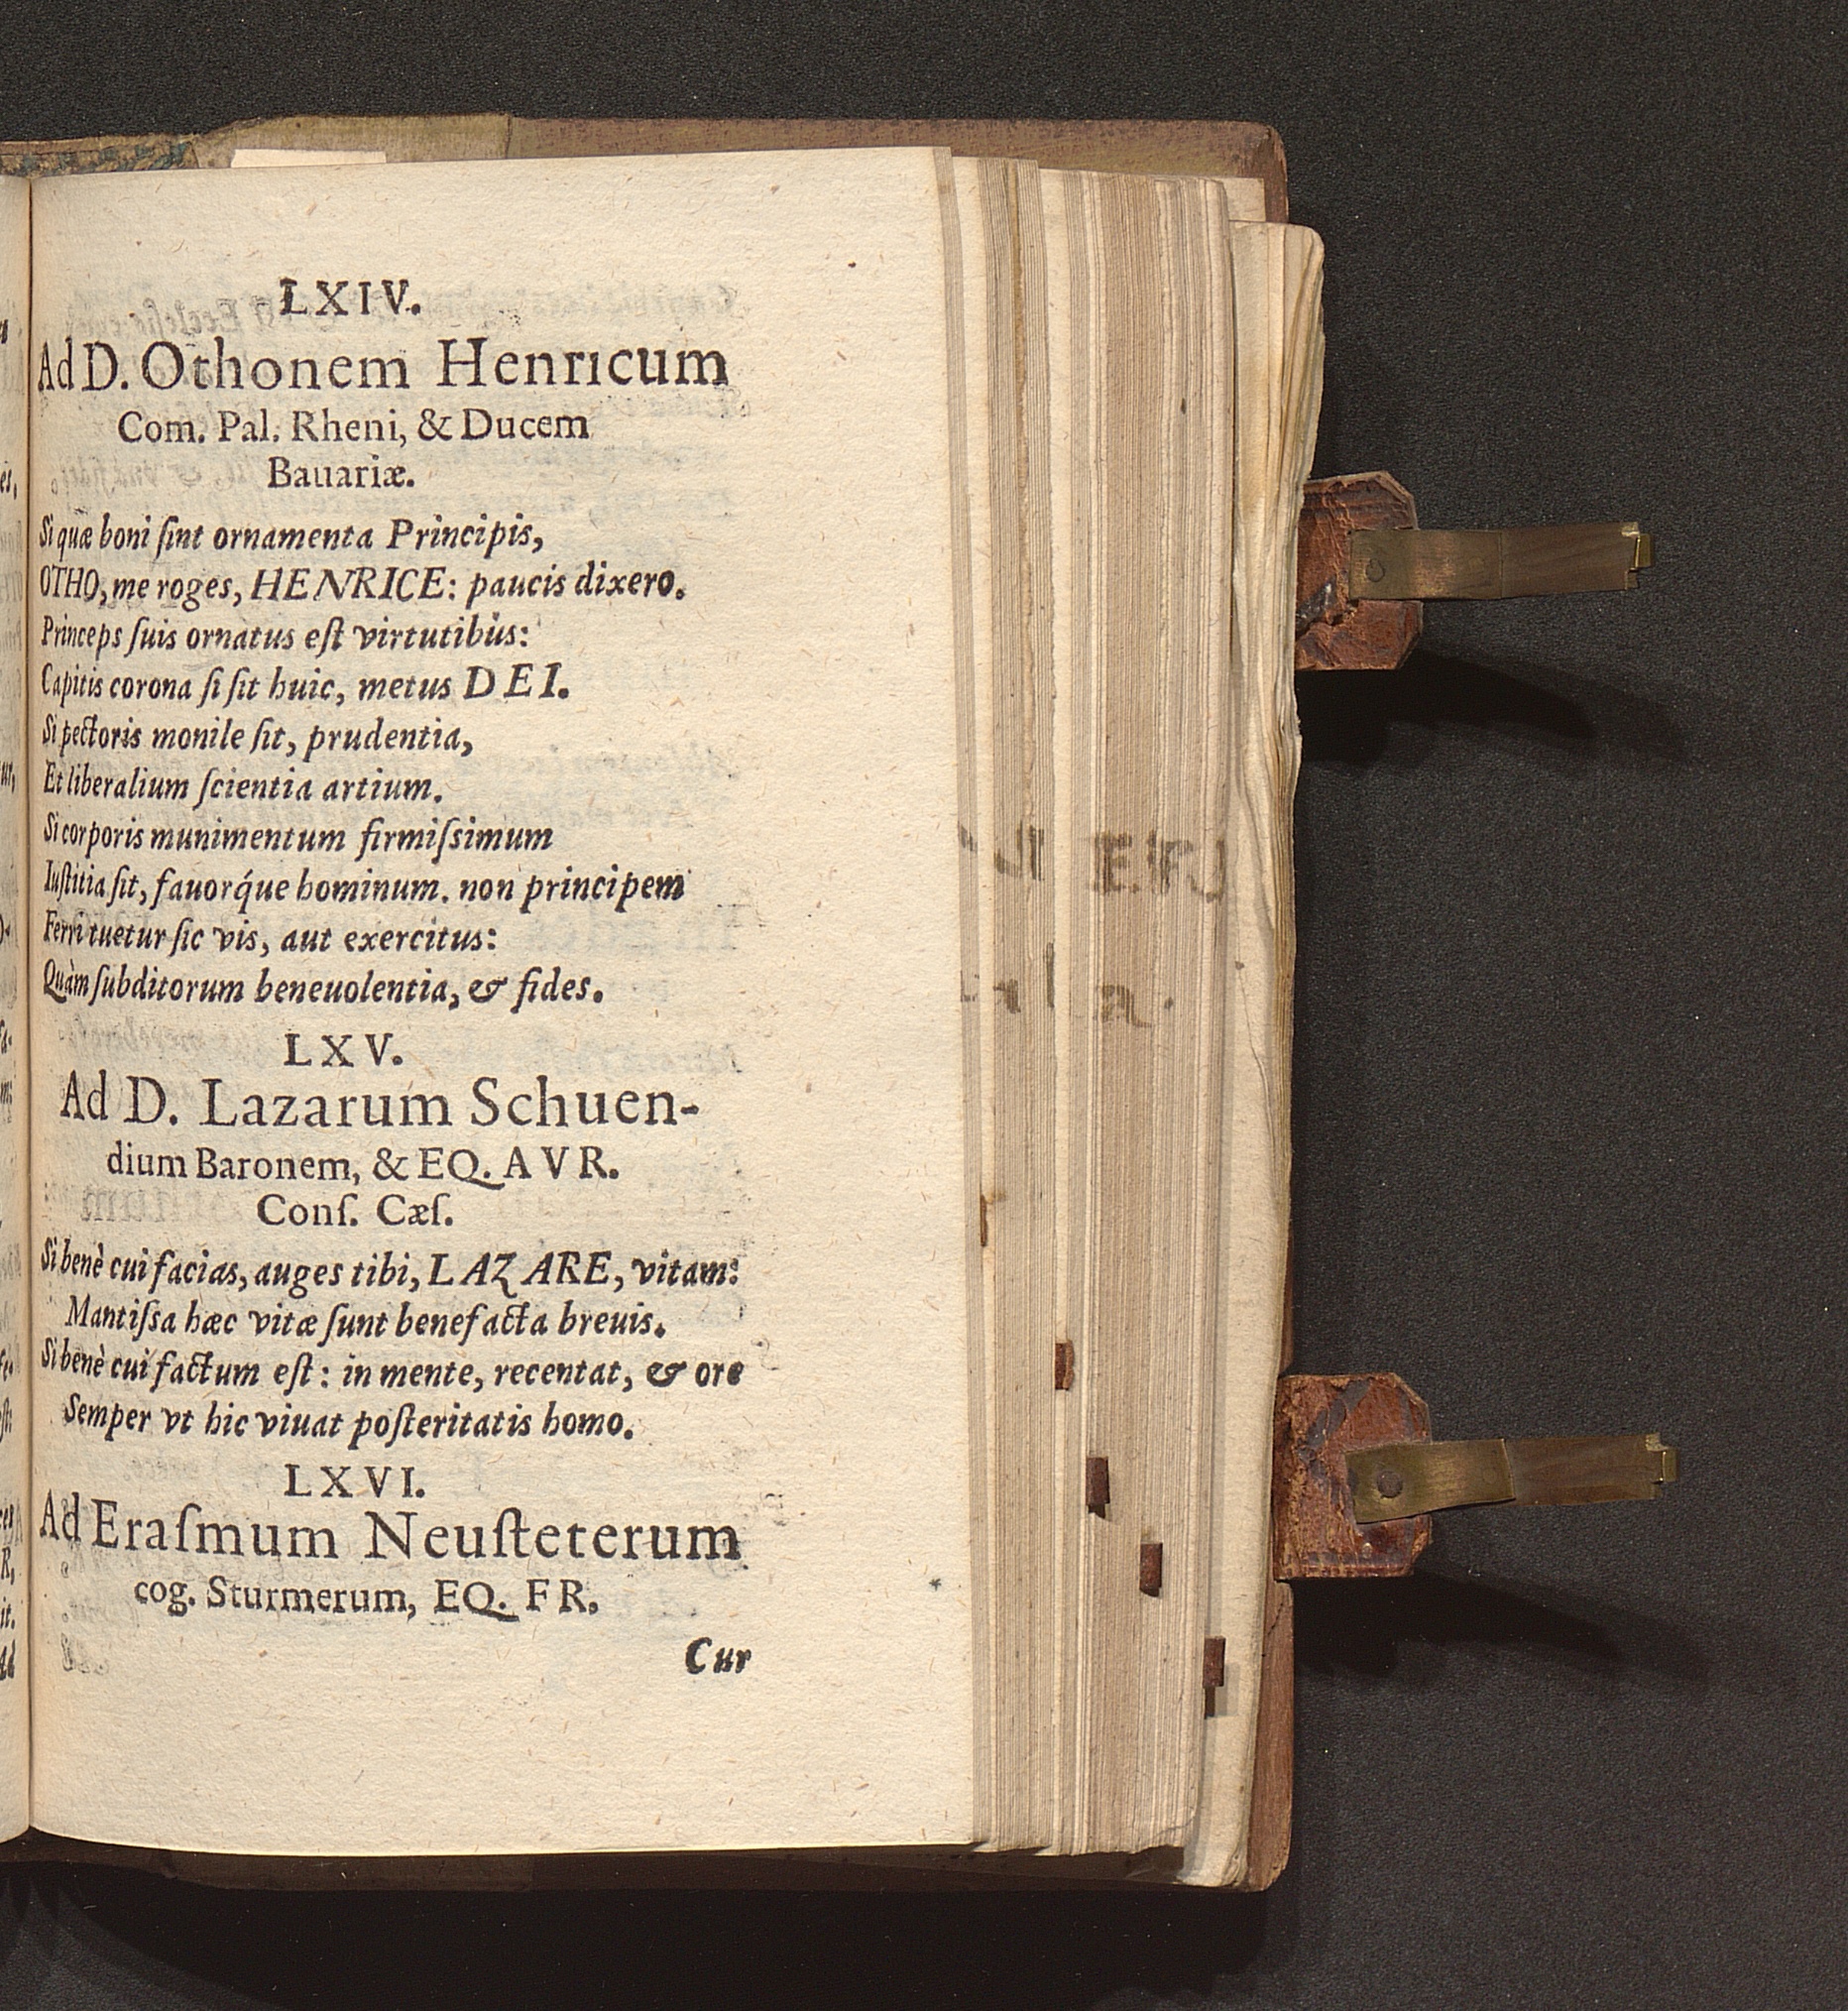 LXIV.
Ad D. Othonem Henricum
Com. Pal. Rheni, & Ducem
Bauariæ.
Si quæ boni ſint ornamenta Principis,
OTHO, me roges, HENRICE: paucis dixero.
Princeps ſuis ornatus eſt virtutibus:
Capitis corona ſi ſit huic, metus DEI.
Si pectoris monile ſit, prudentia,
Et liberalium ſcientia artium.
Si corporis munimentum firmiſsimum
Iuſtitia ſit, fauorq́ue hominum. non principem
Ferri tuetur ſic vis, aut exercitus:
Quàm ſubditorum beneuolentia, & fides.
LXV.
Ad D. Lazarum Schuen-
dium Baronem, & EQ. AVR.
Conſ. Cæſ.
Si benè cui facias, auges tibi, LAZARE, vitam:
Mantiſsa hæc vitæ ſunt benefacta breuis.
Si benè cui factum eſt: in mente, recentat, & ore
Semper vt hic viuat poſteritatis homo.
LXVI.
Ad Eraſmum Neuſteterum
cog. Sturmerum, EQ. FR.
Cur